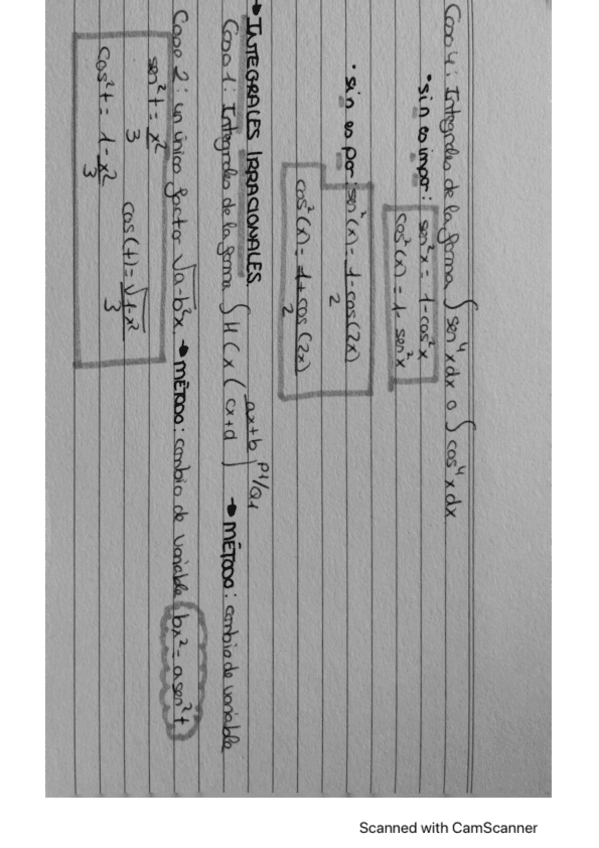 Caso 4: Integrales de la forma ∫ sen⁴xdx o ∫ cos⁴xdx
• sin es impar: sen²x = 1-cos²x
cos²(x) = 1-sen²x
• sin es par: sen²(x) = 1-cos(2x)/2
cos²(x) = 1+cos(2x)/2
→ INTEGRALES IRRACIONALES.
Caso 1: Integrales de la forma ∫ H(x (ax+b/cx+d) P1/Q1 → MÉTODO: cambio de variable
Caso 2: un único factor √a-b²x → MÉTODO: cambio de variable bx² = a sen²t
sen²t = x²/3 cos(t) = √1-x²/3
cos²t = 1-x²/3
Scanned with CamScanner